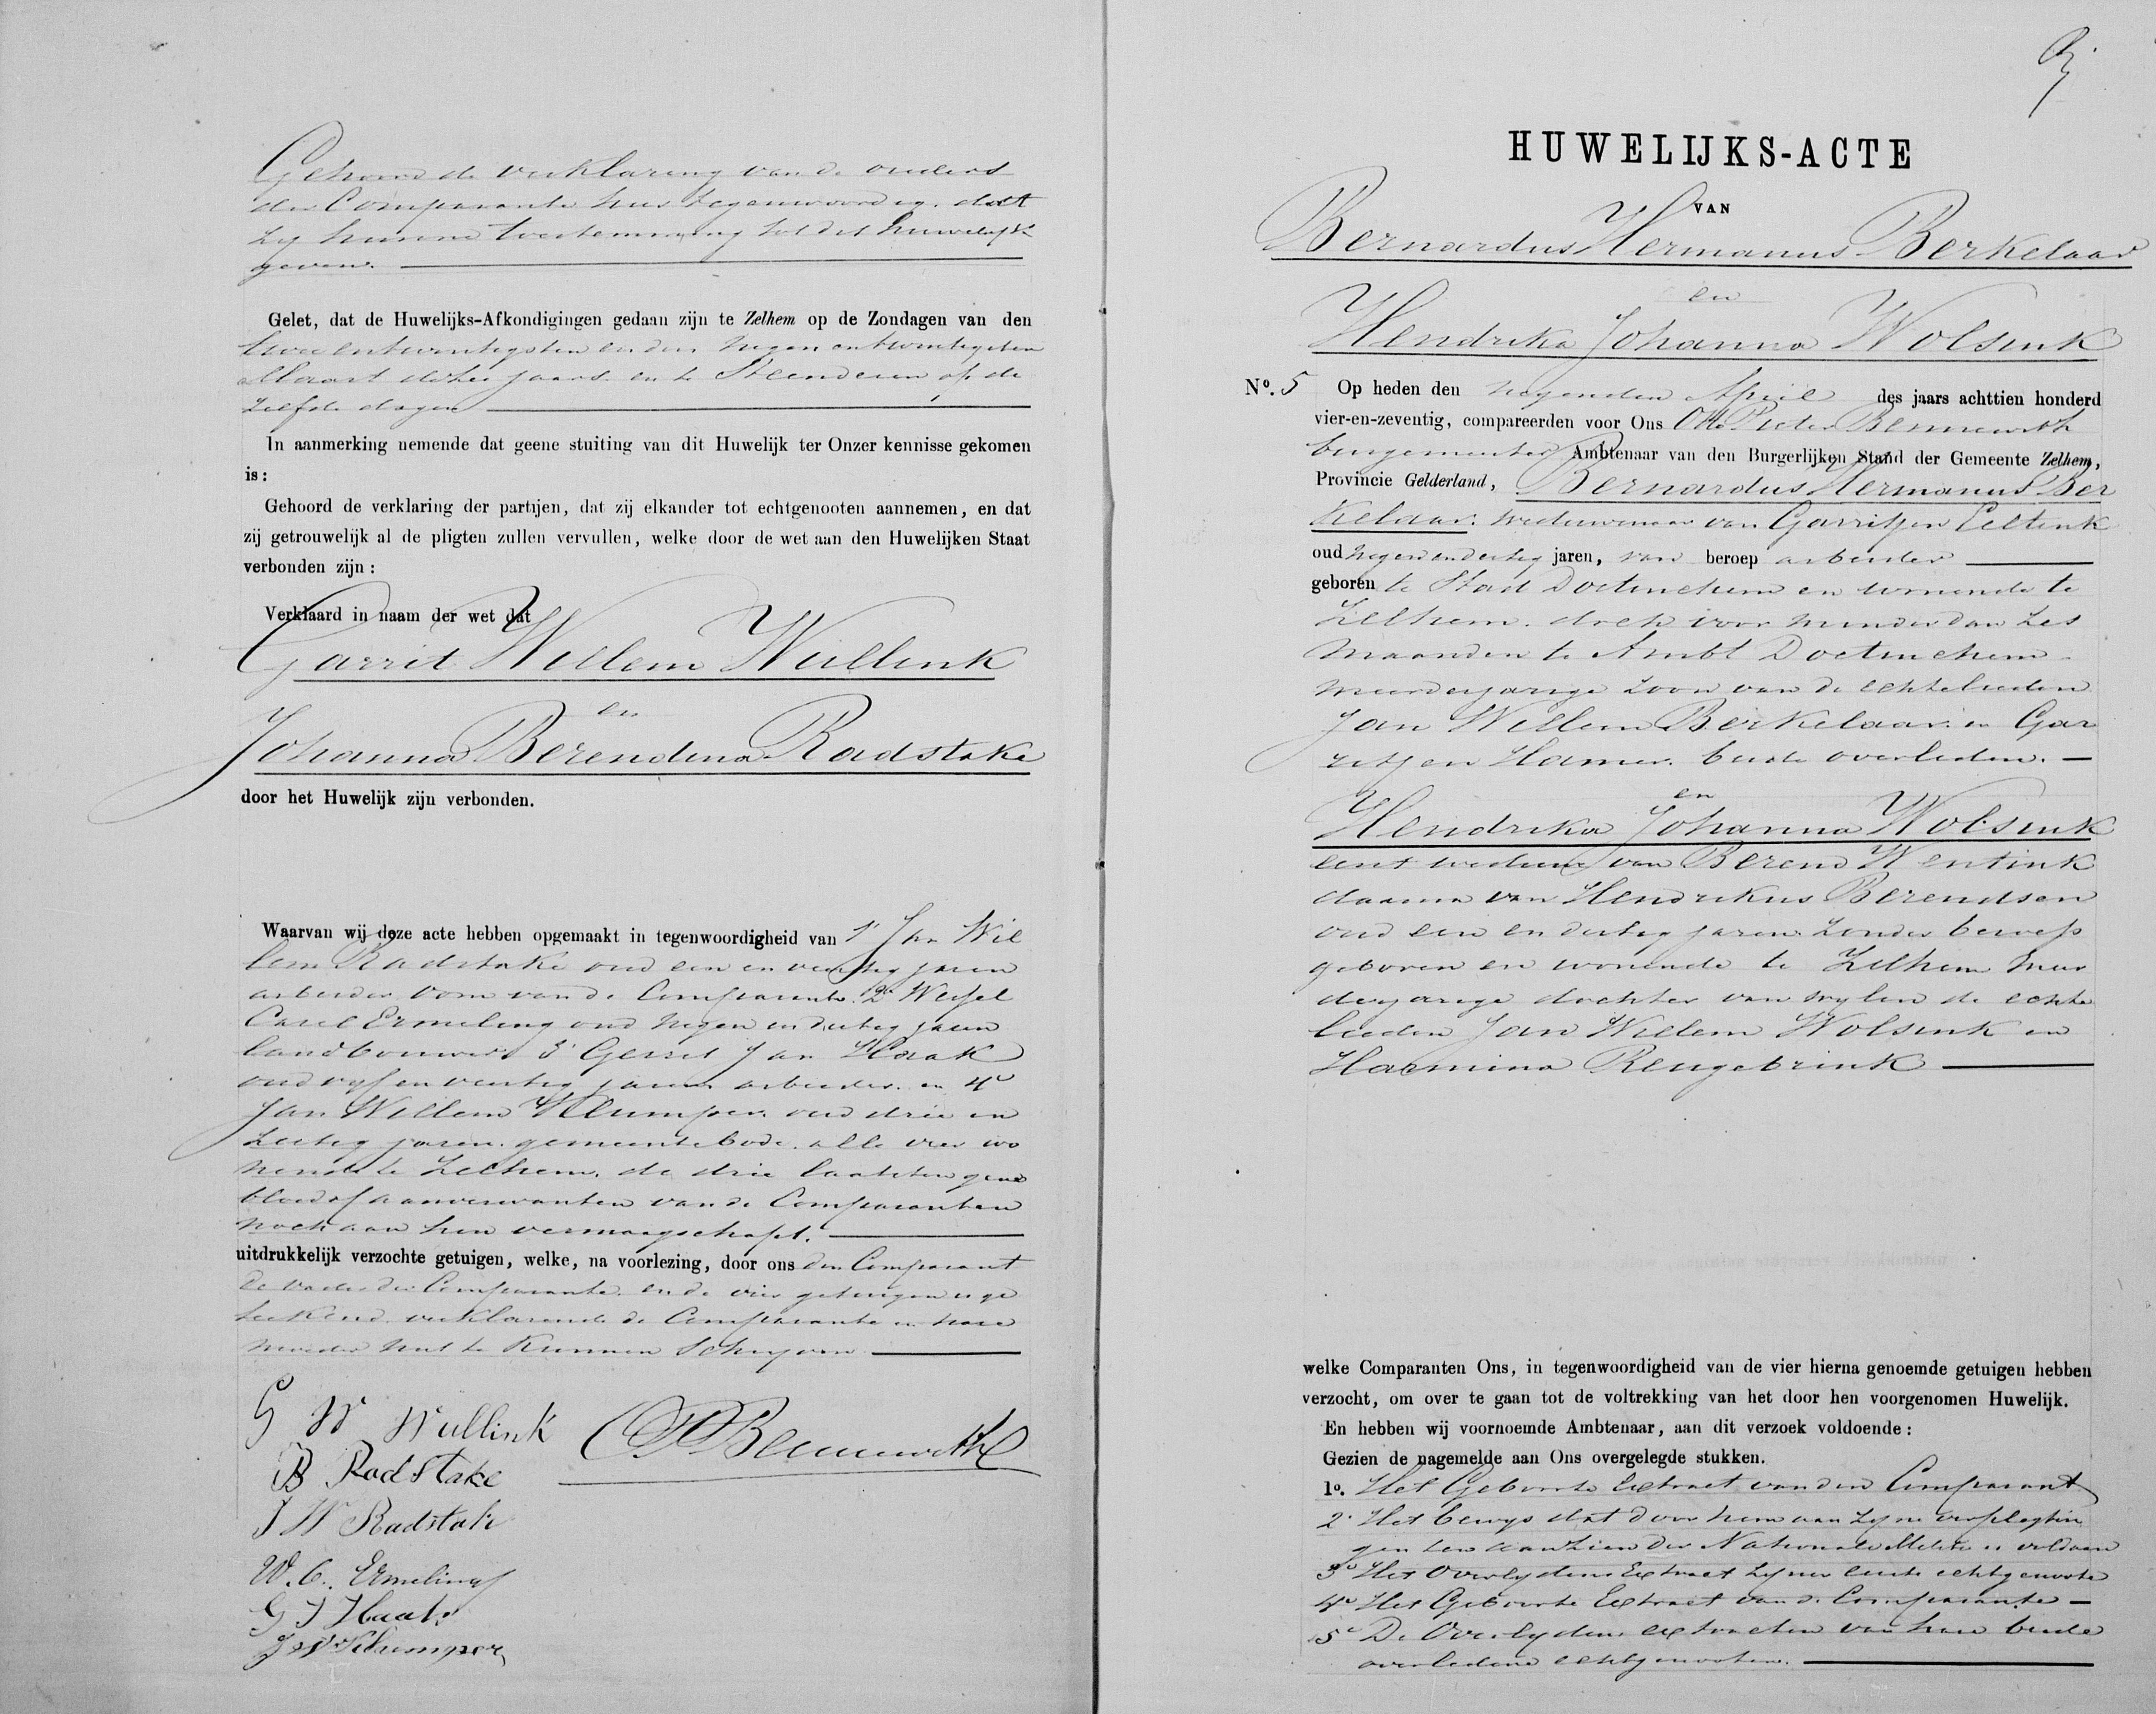 Gehoord de verklaring van de ouders
der Comparante hier tegenwoordig. dat
zij hunne toestemming tot dit huwelijk
geven.
Gelet, dat de Huwelijks-Afkondigingen gedaan zijn te Zelhem op de Zondagen van den
twee en twintigsten en den negen en twintigsten
Maart dezes jaars en te Steenderen op de
zelfde dagen
In aanmerking nemende dat geene stuiting van dit Huwelijk ter Onzer kennisse gekomen
is:
Gehoord de verklaring der partijen, dat zij elkander tot echtgenooten aannemen, en dat
zij getrouwelijk al de pligten zullen vervullen, welke door de wet aan den Huwelijken Staat
verbonden zijn:
Verklaard in naam der wet dat
Garrit Willem Wullink
en
Johanna Berendina Radstake
door het Huwelijk zijn verbonden.
Waarvan wij deze acte hebben opgemaakt in tegenwoordigheid van 1° Jan Wil
lem Radstake oud een en veertig jaren
arbeider oom van de Comparante. 2° Wessel
Carel Ermeling oud negen en dertig jaren
landbouwer 3° Gerrit Jan Haak
oud vijf en veertig jaren arbeider en 4°
Jan Willem Klumper oud drie en
zestig jaren. gemeentebode. alle vier wo
nende te Zelhem. de drie laatsten geene
bloed of aanverwanten van de Comparanten
noch aan hen vermaagschapt.
uitdrukkelijk verzochte getuigen, welke, na voorlezing, door ons den Comparant
de vader der Comparante en de vier getuigen is ge
teekend verklarende de Comparante en hare
moeder niet te kunnen schrijven
G W Wullink
OPBennewith
B Radstake
J W Radstak
W. C. Ermeling
G J Haak
J W Klumper
HUWELIJKS-ACTE
VAN
Bernardus Hermanus Berkelaar
en
Hendrika Johanna Wolsink
No. 5 Op heden den negenden April des jaars achttien honderd
vier-en-zeventig, compareerden voor Ons Otto Pieter Bennewith
burgemeester Ambtenaar van den Burgerlijken Stand der Gemeente Zelhem,
Provincie Gelderland, Bernardus Hermanus Ber
kelaar. weduwnaar van Garritjen Eeltink
oud negen en dertig jaren, van beroep arbeider
geboren te Stad Doetinchem en wonende te
Zelhem. doch voor minder dan zes
maanden te Ambt Doetinchem
meerderjarige zoon van de echtelieden
Jan Willem Berkelaar en Gar
ritjen Hamer. beide overleden.
en
Hendrika Johanna Wolsink
eerst weduwe van Berend Wentink
daarna van Hendrikus Berendsen
oud een en dertig jaren zonder beroep
geboren en wonende te Zelhem meer
derjarige dochter van wijlen de echte
lieden Jan Willem Wolsink en
Harmina Rengebrink
welke Comparanten Ons, in tegenwoordigheid van de vier hierna genoemde getuigen hebben
verzocht, om over te gaan tot de voltrekking van het door hen voorgenomen Huwelijk.
En hebben wij voornoemde Ambtenaar, aan dit verzoek voldoende:
Gezien de nagemelde aan Ons overgelegde stukken.
1o. Het Geboorte Extract van den Comparant
2° Het bewijs dat door hem aan zijne verpligtin
gen ten aanzien der Nationale Militie is voldaan
3° Het Overlydens Extract zijner eerste echtgenoote
4° Het Geboorte Extract van de Comparante
5° De Overlydens extracten van hare beide
overledene echtgenooten.